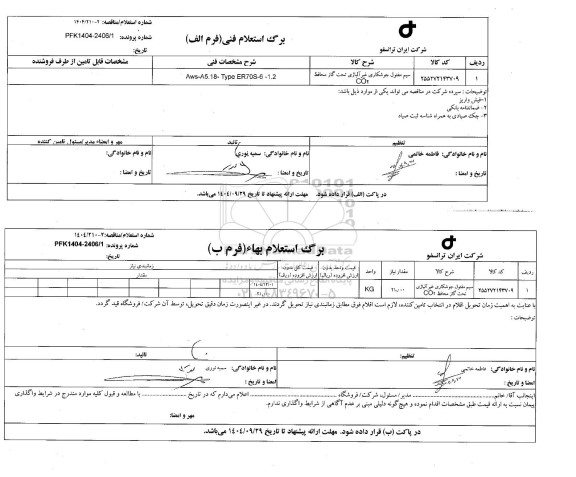 شماره استعلام/مناقصه: ۱۴۰۴/۲۱۰۰۲
برگ استعلام فنی(فرم الف)
شماره پرونده: PFK1404-2406/1
تاریخ:
شرکت ایران ترانسفو
ردیف کد کالا شرح کالا شرح مشخصات فنی مشخصات قابل تامین از طرف فروشنده
۱ ۲۵۵۲۷۲۱۴۳۷۰۹ سیم مفتول جوشکاری غیرآلیاژی تحت گاز محافظ CO۲ Aws-A5.18- Type ER70S-6 -1.2
توضیحات : سپرده شرکت در مناقصه می تواند یکی از موارد ذیل باشد:
۱-فیش واریز
۲- ضمانتنامه بانکی
۳- چک صیادی به همراه شناسه ثبت صیاد
تنظیم تائید مهر و امضاء مدیر/مسئول تامین کننده
نام و نام خانوادگی: فاطمه خاتمی نام و نام خانوادگی: سمیه نوری نام و نام خانوادگی:
تاریخ و امضا : تاریخ و امضا : تاریخ و امضا :
در پاکت (الف) قرار داده شود. مهلت ارائه پیشنهاد تا تاریخ ۱۴۰۴/۰۹/۲۹ می‌باشد.
شماره استعلام/مناقصه: ۱۴۰۴/۲۱۰۰۲
برگ استعلام بهاء(فرم ب)
شماره پرونده: PFK1404-2406/1
تاریخ:
شرکت ایران ترانسفو
ردیف کد کالا شرح کالا مقدار نیاز واحد قیمت واحد بدون ارزش افزوده (ریال) قیمت کل بدون ارزش افزوده (ریال) زمانبندی نیاز
مقدار
۱ ۲۵۵۲۷۲۱۴۳۷۰۹ سیم مفتول جوشکاری غیرآلیاژی تحت گاز محافظ CO۲ ۲۱,۰۰۰ KG
با عنایت به اهمیت زمان تحویل اقلام در انتخاب تامین کننده، لازم است اقلام فوق مطابق زمانبندی نیاز تحویل گردند. در غیر اینصورت زمان دقیق تحویل، توسط آن شرکت/ فروشگاه قید گردد.
توضیحات :
تنظیم: تائید:
نام و نام خانوادگی: فاطمه خاتمی نام و نام خانوادگی: سمیه نوری
امضا و تاریخ : امضا و تاریخ :
اینجانب آقا/ خانم مدیر/ مسئول، شرکت/ فروشگاه اعلام می‌دارم که در تاریخ با مطالعه و قبول کلیه موارد مندرج در شرایط واگذاری
پیمان نسبت به ارائه قیمت طبق مشخصات اقدام نموده و هیچ‌گونه دلیلی مبنی بر عدم آگاهی از شرایط واگذاری ندارم.
مهر و امضا:
در پاکت (ب) قرار داده شود. مهلت ارائه پیشنهاد تا تاریخ ۱۴۰۴/۰۹/۲۹ می‌باشد.